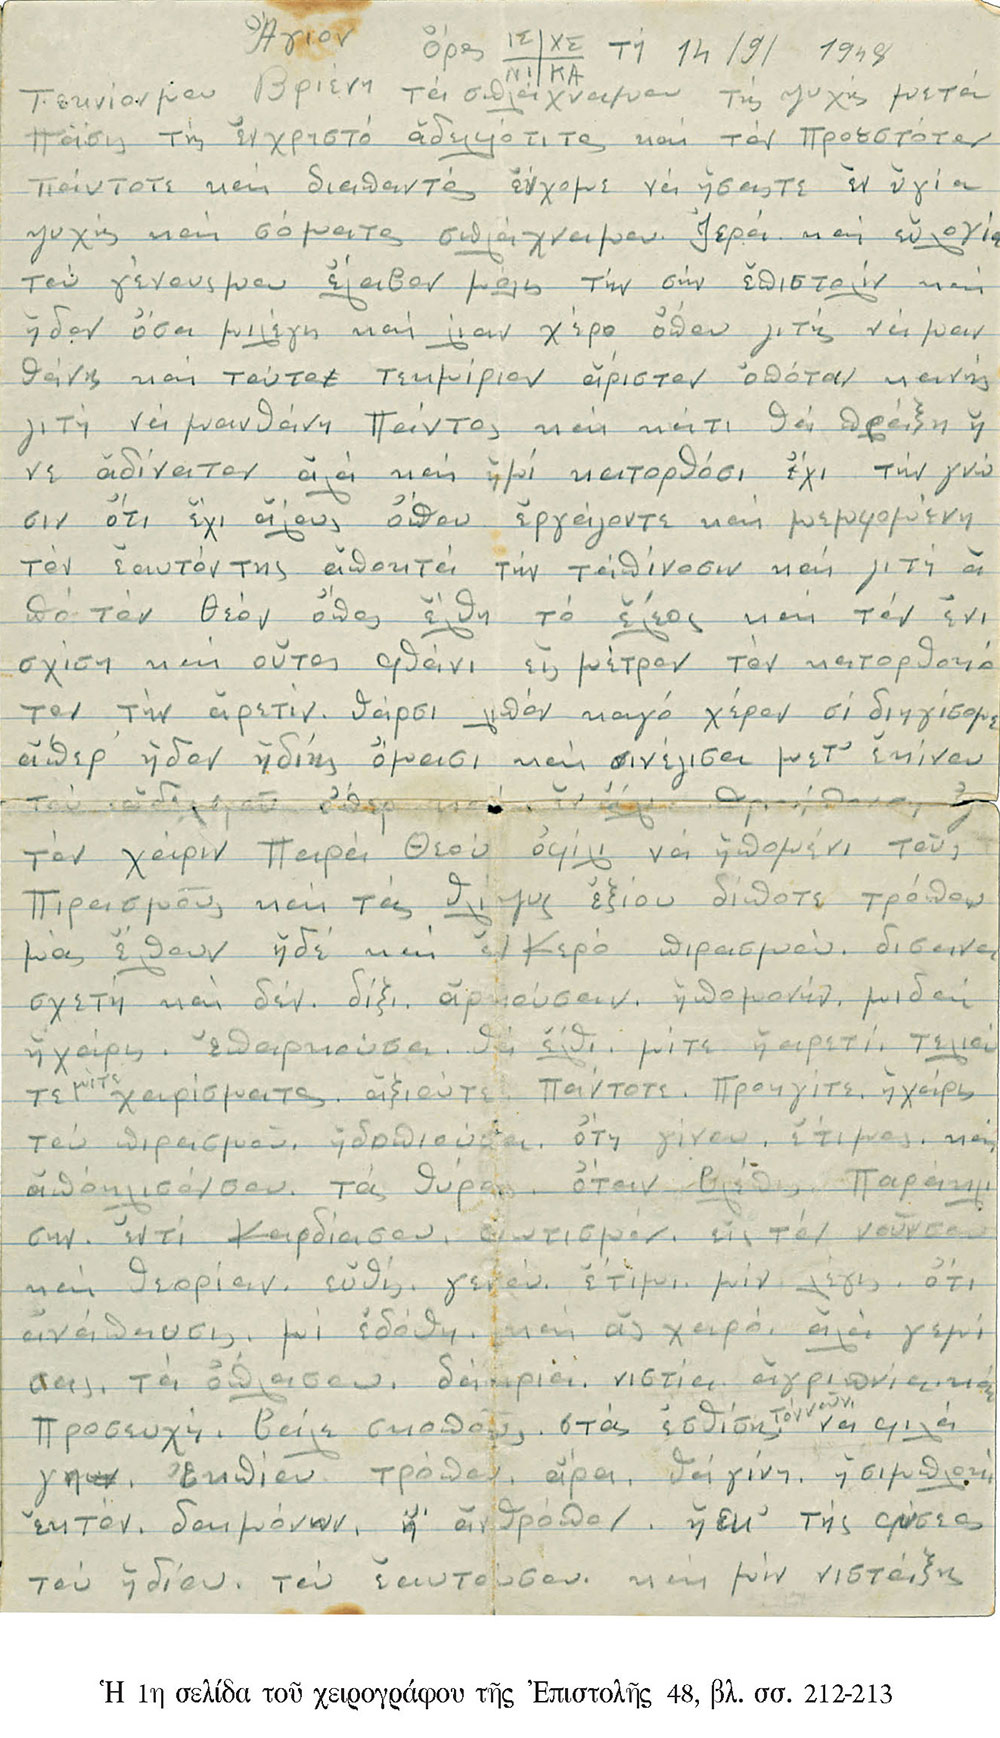 Ἅγιον Ὄρος ΙΣ ΧΣ ΝΙ ΚΑ τί 14 /9/ 1948
Τεκνίονμου Βριένη τά σπλάχναμου τῆς ψυχῆς μετά
πάσις τῆς ἐνχριστό ἀδελφότιτας καί τόν Προεστότον
πάντοτε καί διαπαντός ἔυχομε νά ἦσαστε ἔν ὑγία
ψυχῆς καί σόματος σπλάχναμου. Ἱερά. καί εὐλογία
τοῦ γένουςμου ἔλαβον μόλις τήν σήν ἐπιστολίν καί
ἦδον ὅσα μιλέγη καί λιαν χέρο ὅπου ζιτῆς νά μαν
θάνης καί τούτο τεκμίριον ἄριστον ὁπόταν κανῆς
ζιτῆ νά μανθάνη Πάντος καί κάτι θά πράξη ἤ
νε ἀδίνατον ἀλά καί ἤμί κατορθόσι ἔχι τήν γνώ
σιν ὅτι ἔχι ἄλους ὅπου ἐργάζοντε καί μεμφομένη
τόν ἑαυτόντης ἀποκτά τήν ταπίνοσιν καί ζιτῆ ἀ
πό τόν Θεόν ὅπος ἔλθη τό ἔλεος καί τόν ἐνι
σχίση καί οὕτος φθάνι εἰς μέτρον τόν κατορθοκό
τον τήν ἀρετίν. θάρσι λιπόν καγό χέρον σί διηγίσομε
ἅπερ ἦδον ἠδίης ὄμασι καί σινέζισα μετ' ἐκίνου
τοῦ ἀδελφοῦ
τόν χάριν Παρά Θεοῦ ὀφίλι νά ἠπομένι τούς
Πιρασμούς καί τάς θλίψις ἐξίου δίποτε τρόπου
μᾶς ἔλθουν ἠδέ καί ἐν Κερό πιρασμοῦ. δισανα
σχετῆ καί δέν. δίξι. ἀρκούσαν. ἠπομονήν. μιδαή
ἡχάρις. ἐπαρκούσα. θά ἔλθι. μίτε ἡαρετί. τελιού
τε μίτε χαρίσματος. ἀξιούτε. Πάντοτε. Προηγίτε. ἡχάρις
τοῦ πιρασμοῦ. ἠδοπιούσα. ὅτη γίνου. ἕτιμος. καί
ἀπόκλισόνσου. τάς θύρας. ὅταν βλέπις. Παράκλι
σην. ἔντί Καρδίασου. φωτισμόν. εἰς τόν νοῦνσου
καί θεορίαν. εὐθίς. γενοῦ. ἕτιμι. μίν. λέγις. ὅτι
ἀνάπαυσις. μί ἐδόθη. καί ἄς χαρό. ἀλά γεμί
σας. τά ὅπλασου. δάκρια. νιστία. ἀγριπνία. καί
Προσευχή. βάλε σκοπούς. στάς ἐσθίσης. τόννοῦνι νά φιλά
γη. Ἐκπίου τρόπου. ἄρα. θά γίνη. ἡσιμπλοκή
ἐκτόν. δαιμόνων. ἤ ἀνθρόπον. ἤ ἐκ τῆς φύσεος
τοῦ ἠδίου. τοῦ ἑαυτούσου. καί μίν νιστάξης
Ἡ 1η σελίδα τοῦ χειρογράφου τῆς Ἐπιστολῆς 48, βλ. σσ. 212-213